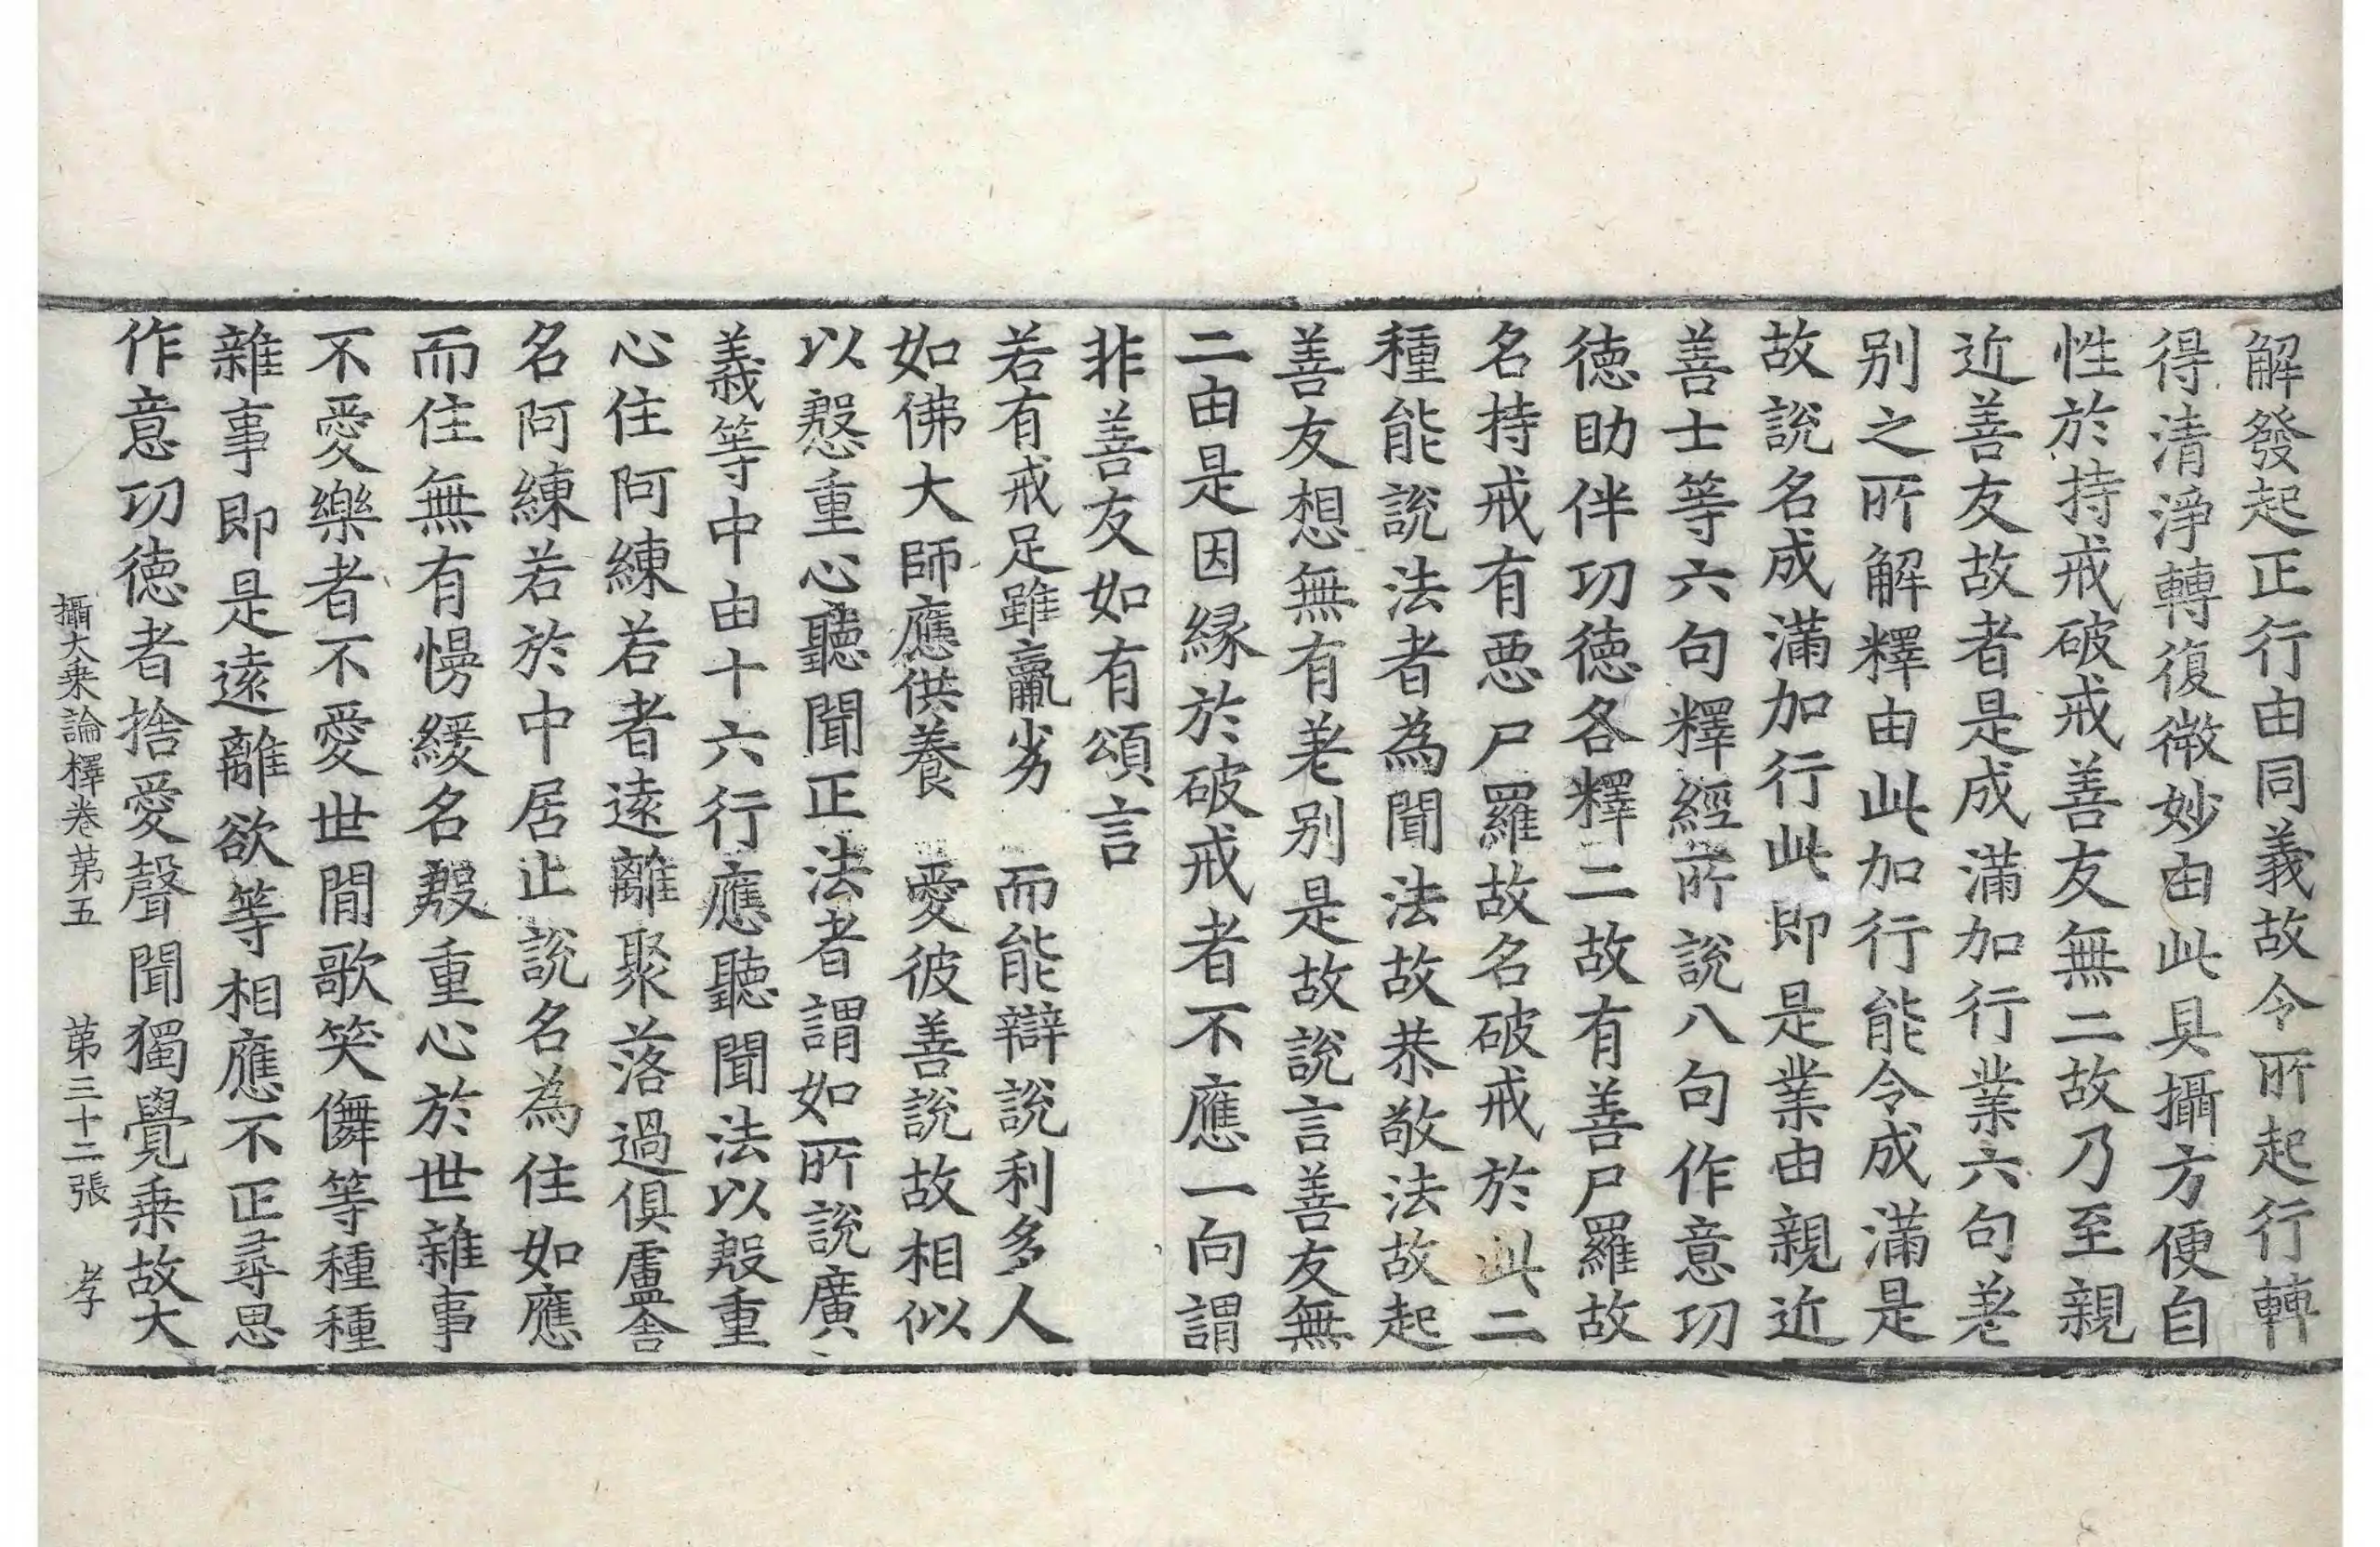 解發起正行由同義故令所起行轉
得清淨轉復微妙由此具攝方便自
性於持戒破戒善友無二故乃至親
近善友故者是成滿加行業六句差
別之所解釋由此加行能令成滿是
故說名成滿加行此即是業由親近
善士等六句釋經所說八句作意功
德助伴功德各釋二故有善尸羅故
名持戒有惡尸羅故名破戒於此二
種能說法者為聞法故恭敬法故起
善友想無有差別是故說言善友無
二由是因緣於破戒者不應一向謂
非善友如有頌言
若有戒足雖羸劣　而能辯說利多人
如佛大師應供養　愛彼善說故相似
以慇重心聽聞正法者謂如所說廣
義等中由十六行應聽聞法以慇重
心住阿練若者遠離聚落過俱盧舍
名阿練若於中居止說名為住如應
而住無有慢緩名慇重心於世雜事
不愛樂者不愛世間歌笑儛等種種
雜事即是遠離欲等相應不正尋思
作意功德者捨愛聲聞獨覺乘故大
攝大乘論釋卷第五　第三十二張　孝